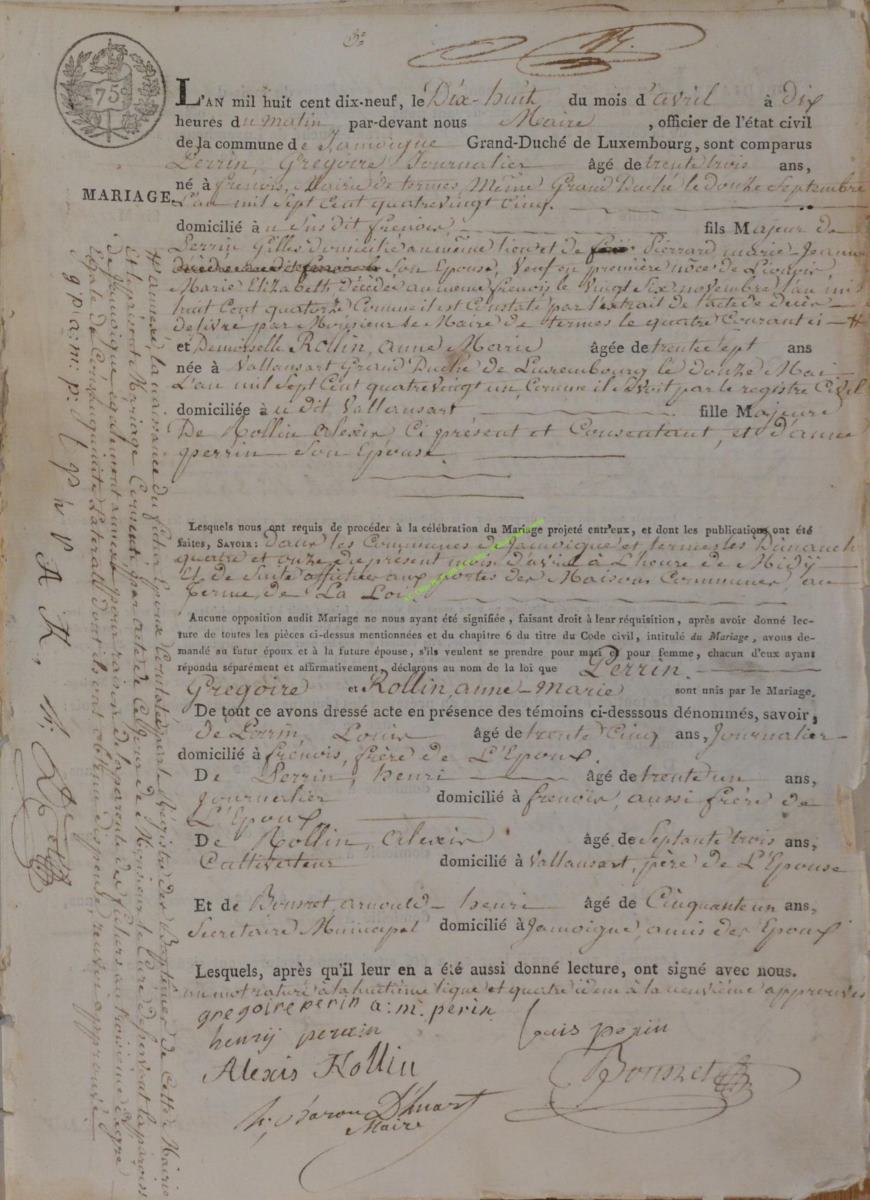 75
L'AN mil huit cent dix-neuf, le Dix-huit du mois d'avril à dix
heures du matin, par-devant nous Maire, officier de l'état civil
de la commune de Jamoigne Grand-Duché de Luxembourg, sont comparus
Perrin, Gregoire Journalier âgé de trente trois ans,
MARIAGE.
né à frenois, Mairie de termes, Même Grand Duché le douze Septembre
L'an mil Sept Cent quatre vingt Cinq.
domicilié à u Susdit frenois, fils Majeur de
Perrin Gilles domicilié au même lieu et de Pierrard marie-Jeanne
Son Epouse, Veuf en première nôce de
Marie Elizabeth Décédée au même frenois le Vingt Six novembre l'an mil
huit Cent quatorze Comme il est Constaté par l'extrait de l'acte de décès
délivré par Monsieur le Maire de termes le quatre Courant
et Demoiselle Rollin, anne Marie âgée de trente Sept ans
née à Vallansart Grand Duché de Luxembourg le Douze Mai
L'an mil Sept Cent quatre vingt un, Comme il Se voit par le registre Civil
domiciliée à u dit Vallansart fille Majeure
De Rollin alexis, Ci présent et Consentant, et d'anne
perrin Son Epouse.
Lesquels nous ont requis de procéder à la célébration du Mariage projeté entr'eux, et dont les publications ont été
faites, SAVOIR: dans les Communes de Jamoigne et termes les Dimanch
quatre et onze du présent mois d'avril à L'heure de Midy
Et de Suite affichée aux portes des Maisons Communes, au
terme de La Loi
Aucune opposition audit Mariage ne nous ayant été signifiée, faisant droit à leur réquisition, après avoir donné lec-
ture de toutes les pièces ci-dessus mentionnées et du chapitre 6 du titre du Code civil, intitulé du Mariage, avons de-
mandé au futur époux et à la future épouse, s'ils veulent se prendre pour mari et pour femme, chacun d'eux ayant
répondu séparément et affirmativement, déclarons au nom de la loi que Perrin.
Gregoire et Rollin, anne-Marie sont unis par le Mariage.
De tout ce avons dressé acte en présence des témoins ci-desssous dénommés, savoir,
de Perrin, Louis âgé de trente Cinq ans, Journalier
domicilié à frénois, frère de L'Epoux.
De Perrin, henri âgé de trente un ans,
Journalier domicilié à frenois, aussi frère de
L'Epoux,
De Rollin, alexis âgé de Septante trois ans,
Cultivateur domicilié à Vallansart, père de L'Epouse
Et de Bonsret arnould-henri âgé de Cinquante un ans,
Secrétaire Municipal domicilié à Jamoigne, amis des Epoux
Lesquels, après qu'il leur en a été aussi donné lecture, ont signé avec nous.
un mot raturé à la huitième ligne et quatre idem à la neuvième approuvés
gregoire perin a: m: perin
henrij perain Louis perin
Alexis Rollin Bonsret
Baron
Maire
annexé, la naissance du futur Epoux Constatée par le Régistre des Baptêmes de Cette Mairie
et le présent Mariage Consenti par acte de Monsieur le Curé desservant la paroisse
de Jamoigne également annexé pour raison de la parenté des futurs au troisième dégré
légale de Consanguinité Latérale dont ils ont obtenu dispense, renvoi approuvé
g p a: m: p:
A R